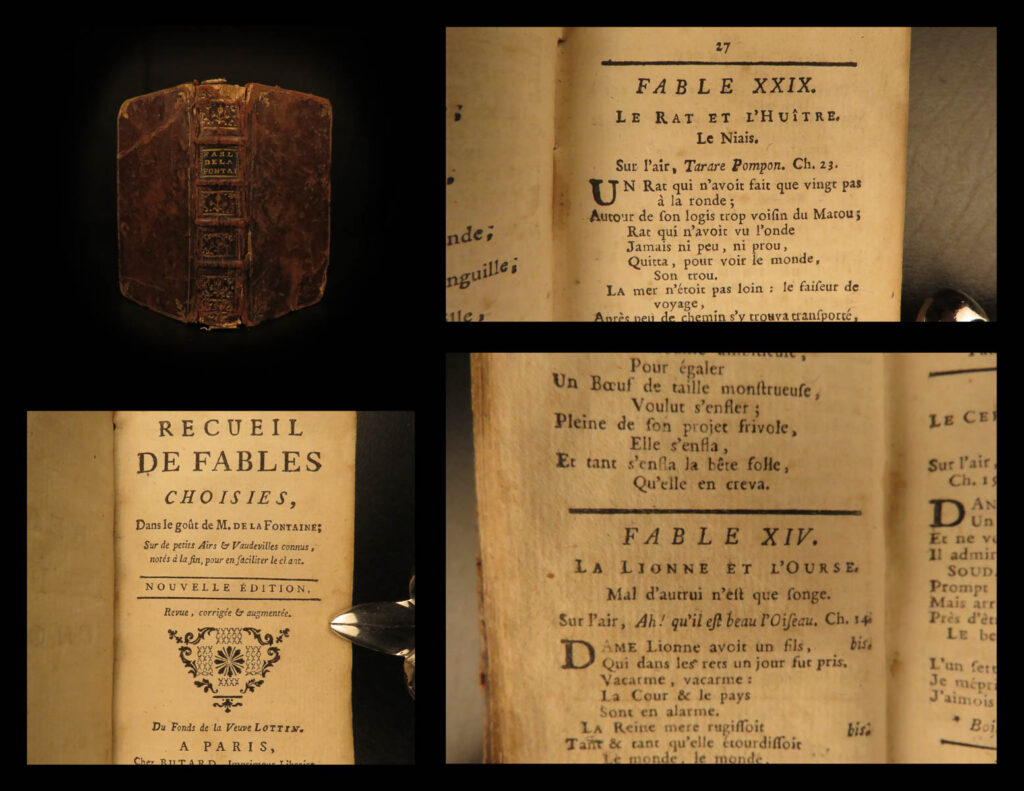 FABL
DE LA
FONTAI
27
FABLE XXIX.
LE RAT ET L'HUÎTRE.
Le Niais.
Sur l'air, Tarare Pompon. Ch. 23.
UN Rat qui n'avoit fait que vingt pas
à la ronde ;
Autour de ſon logis trop voiſin du Matou ;
Rat qui n'avoit vu l'onde
Jamais ni peu, ni prou,
Quitta, pour voir le monde,
Son trou.
LA mer n'étoit pas loin : le faiſeur de
voyage,
Après peu de chemin s'y trouva tranſporté,
nde ;
nguille ;
RECUEIL
DE FABLES
CHOISIES,
Dans le goût de M. DE LA FONTAINE ;
Sur de petits Airs & Vaudevilles connus,
notés à la fin, pour en faciliter le chant.
NOUVELLE ÉDITION,
Revue, corrigée & augmentée.
Du Fonds de la Veuve LOTTIN.
A PARIS,
Chez BUTARD, Imprimeur-Libraire
Pour égaler
Un Bœuf de taille monſtrueuſe,
Voulut s'enfler ;
Pleine de ſon projet frivole,
Elle s'enfla,
Et tant s'enfla la bête folle,
Qu'elle en creva.
FABLE XIV.
LA LIONNE ET L'OURSE.
Mal d'autrui n'eſt que ſonge.
Sur l'air, Ah ! qu'il eſt beau l'Oiſeau. Ch. 14.
DAME Lionne avoit un fils, bis.
Qui dans les rets un jour fut pris.
Vacarme, vacarme :
La Cour & le pays
Sont en alarme.
LA Reine mere rugiſſoit bis.
Tant & tant qu'elle étourdiſſoit
Le monde, le monde.
LE CER
Sur l'air,
Ch. 15
DAN
Un
Et ne v
Il admir
SOUD
Prompt
Mais arr
Près d'ê
LE be
L'un ſer
Je mépri
J'aimois
* Boi